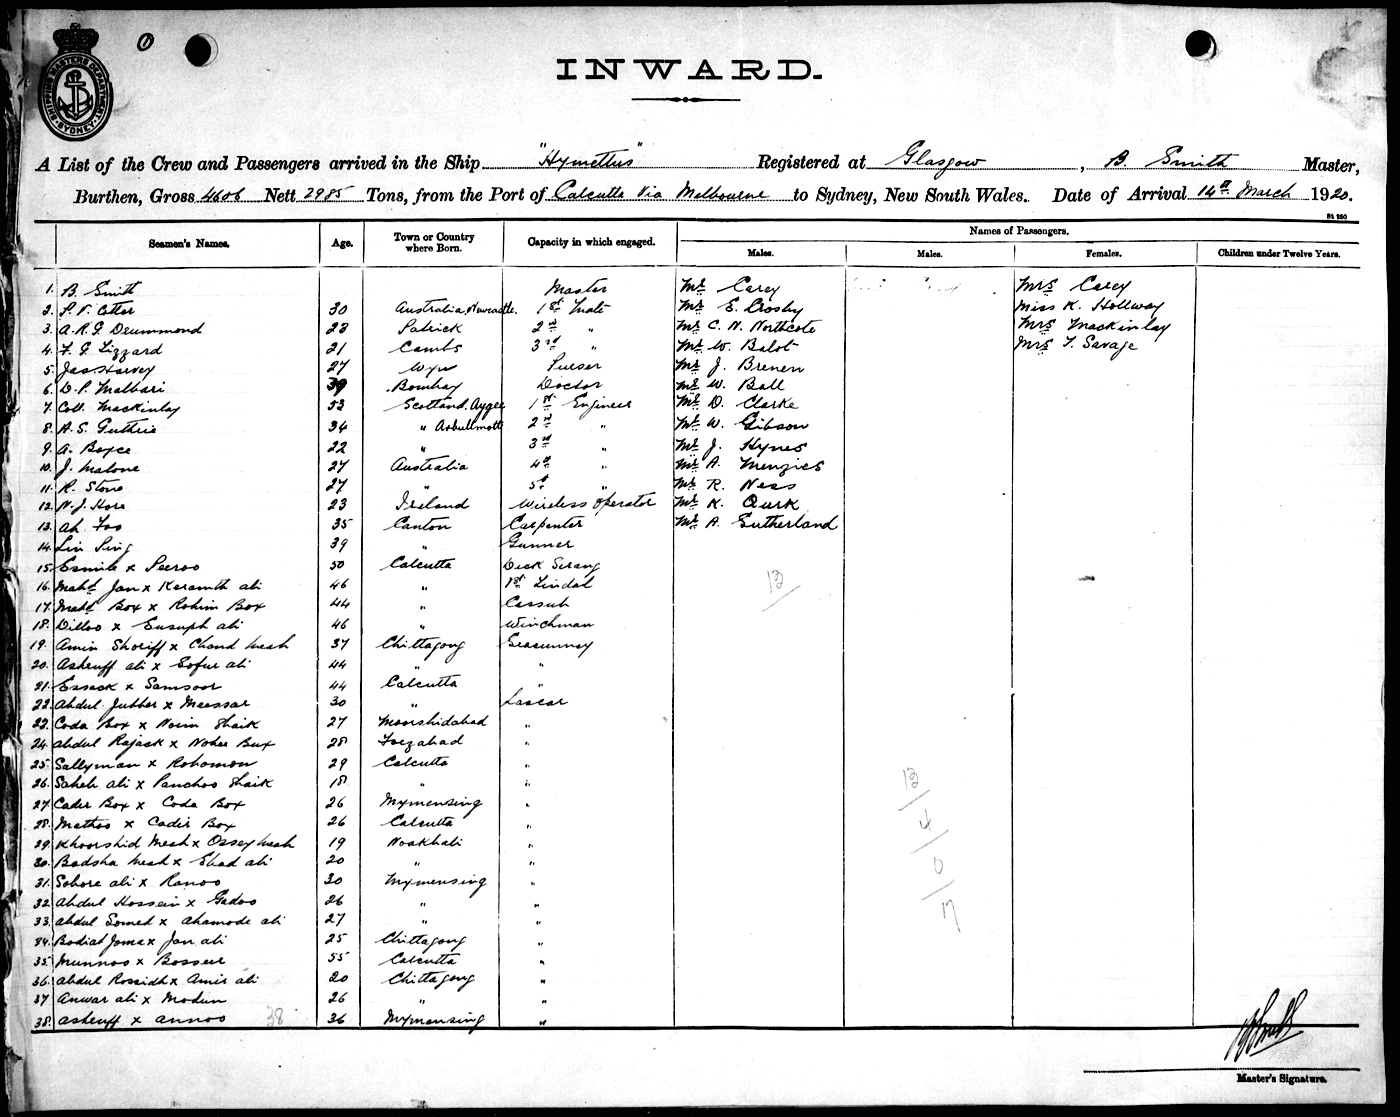 SHIPPING MASTERS DEPARTMENT
SYDNEY
INWARD.
A List of the Crew and Passengers arrived in the Ship "Hymettus" Registered at Glasgow, B. Smith Master,
Burthen, Gross 4606 Nett 2985 Tons, from the Port of Calcutta Via Melbourne to Sydney, New South Wales. Date of Arrival 14th March 1920.
St 150
Seamen's Names. Age. Town or Country where Born. Capacity in which engaged. Names of Passengers.
Males. Males. Females. Children under Twelve Years.
1. B. Smith Master Mr Carey Mrs Carey
2. Cotter 30 Australia, Newcastle. 1st Mate Mr E. Crosby Miss K. Hollway
3. A. R. G Drummond 23 Patrick 2nd " Mr C. N. Northcote Mrs Mackinlay
4. F. G. Lizzard 21 Cambs 3rd " Mr W. Balot Mrs F. Savage
5. Jas Harvey 27 Purser Mr J. Brenen
6. D. P. Malbari 39 Bombay Doctor Mr W. Ball
7. Coll. Mackinlay 53 Scotland. 1st Engineer Mr D. Clarke
8. A. S. Guthrie 34 " 2nd " Mr W. Gibson
9. A. Boyce 22 " 3rd " Mr J. Hynes
10. J. Malone 27 Australia 4th " Mr A. Menzies
11. R. Stone 27 " 5th " Mr R. Ness
12. N. J. Hore 23 Ireland Wireless Operator Mr K. Quirk
13. Ah Foo 35 Canton Carpenter Mr A. Sutherland
14. Lin Sing 39 " Gunner
15. Esmile x Peeroo 50 Calcutta Deck Serang
16. Mahd Jan x Keramth ali 46 " 1st Tindal
17. Mahd Box x Rohim Box 44 " Cassub
18. Dilloo x Eusuph ali 46 " Winchman
19. Amin Shoriff x Chand Meah 37 Chittagong Seacunny
20. Asheruff ali x Gofur ali 44 " "
21. Essack x Samsoor 44 Calcutta "
22. Abdul Jubber x Meessar 30 " Lascar
23. Coda Box x Noim Shaik 27 Moorshidabad "
24. Abdul Rajack x Noher Bux 28 Foezabad "
25. Sallyman x Rohomon 29 Calcutta "
26. Saheb ali x Panchoo Shaik 18 " "
27. Cader Box x Coda Box 26 Mymensing "
28. Mathoo x Cadir Box 26 Calcutta "
29. Khoorshid Meah x Ossey Meah 19 Noakhali "
30. Badsha Meah x Ehad ali 20 " "
31. Sobore ali x Ranoo 30 Mymensing "
32. Abdul Hossein x Gadoo 26 " "
33. Abdul Somed x Ahamode ali 27 " "
34. Bodiat Joma x Jan ali 25 Chittagong "
35. Munnoo x Bosseer 55 Calcutta "
36. Abdul Rossidh x Amir ali 20 Chittagong "
37 Anwar ali x Modun 26 " "
38. Asheruff x Annoo 38 36 Mymensing "
13
13
4
0
17
B Smith
Master's Signature.